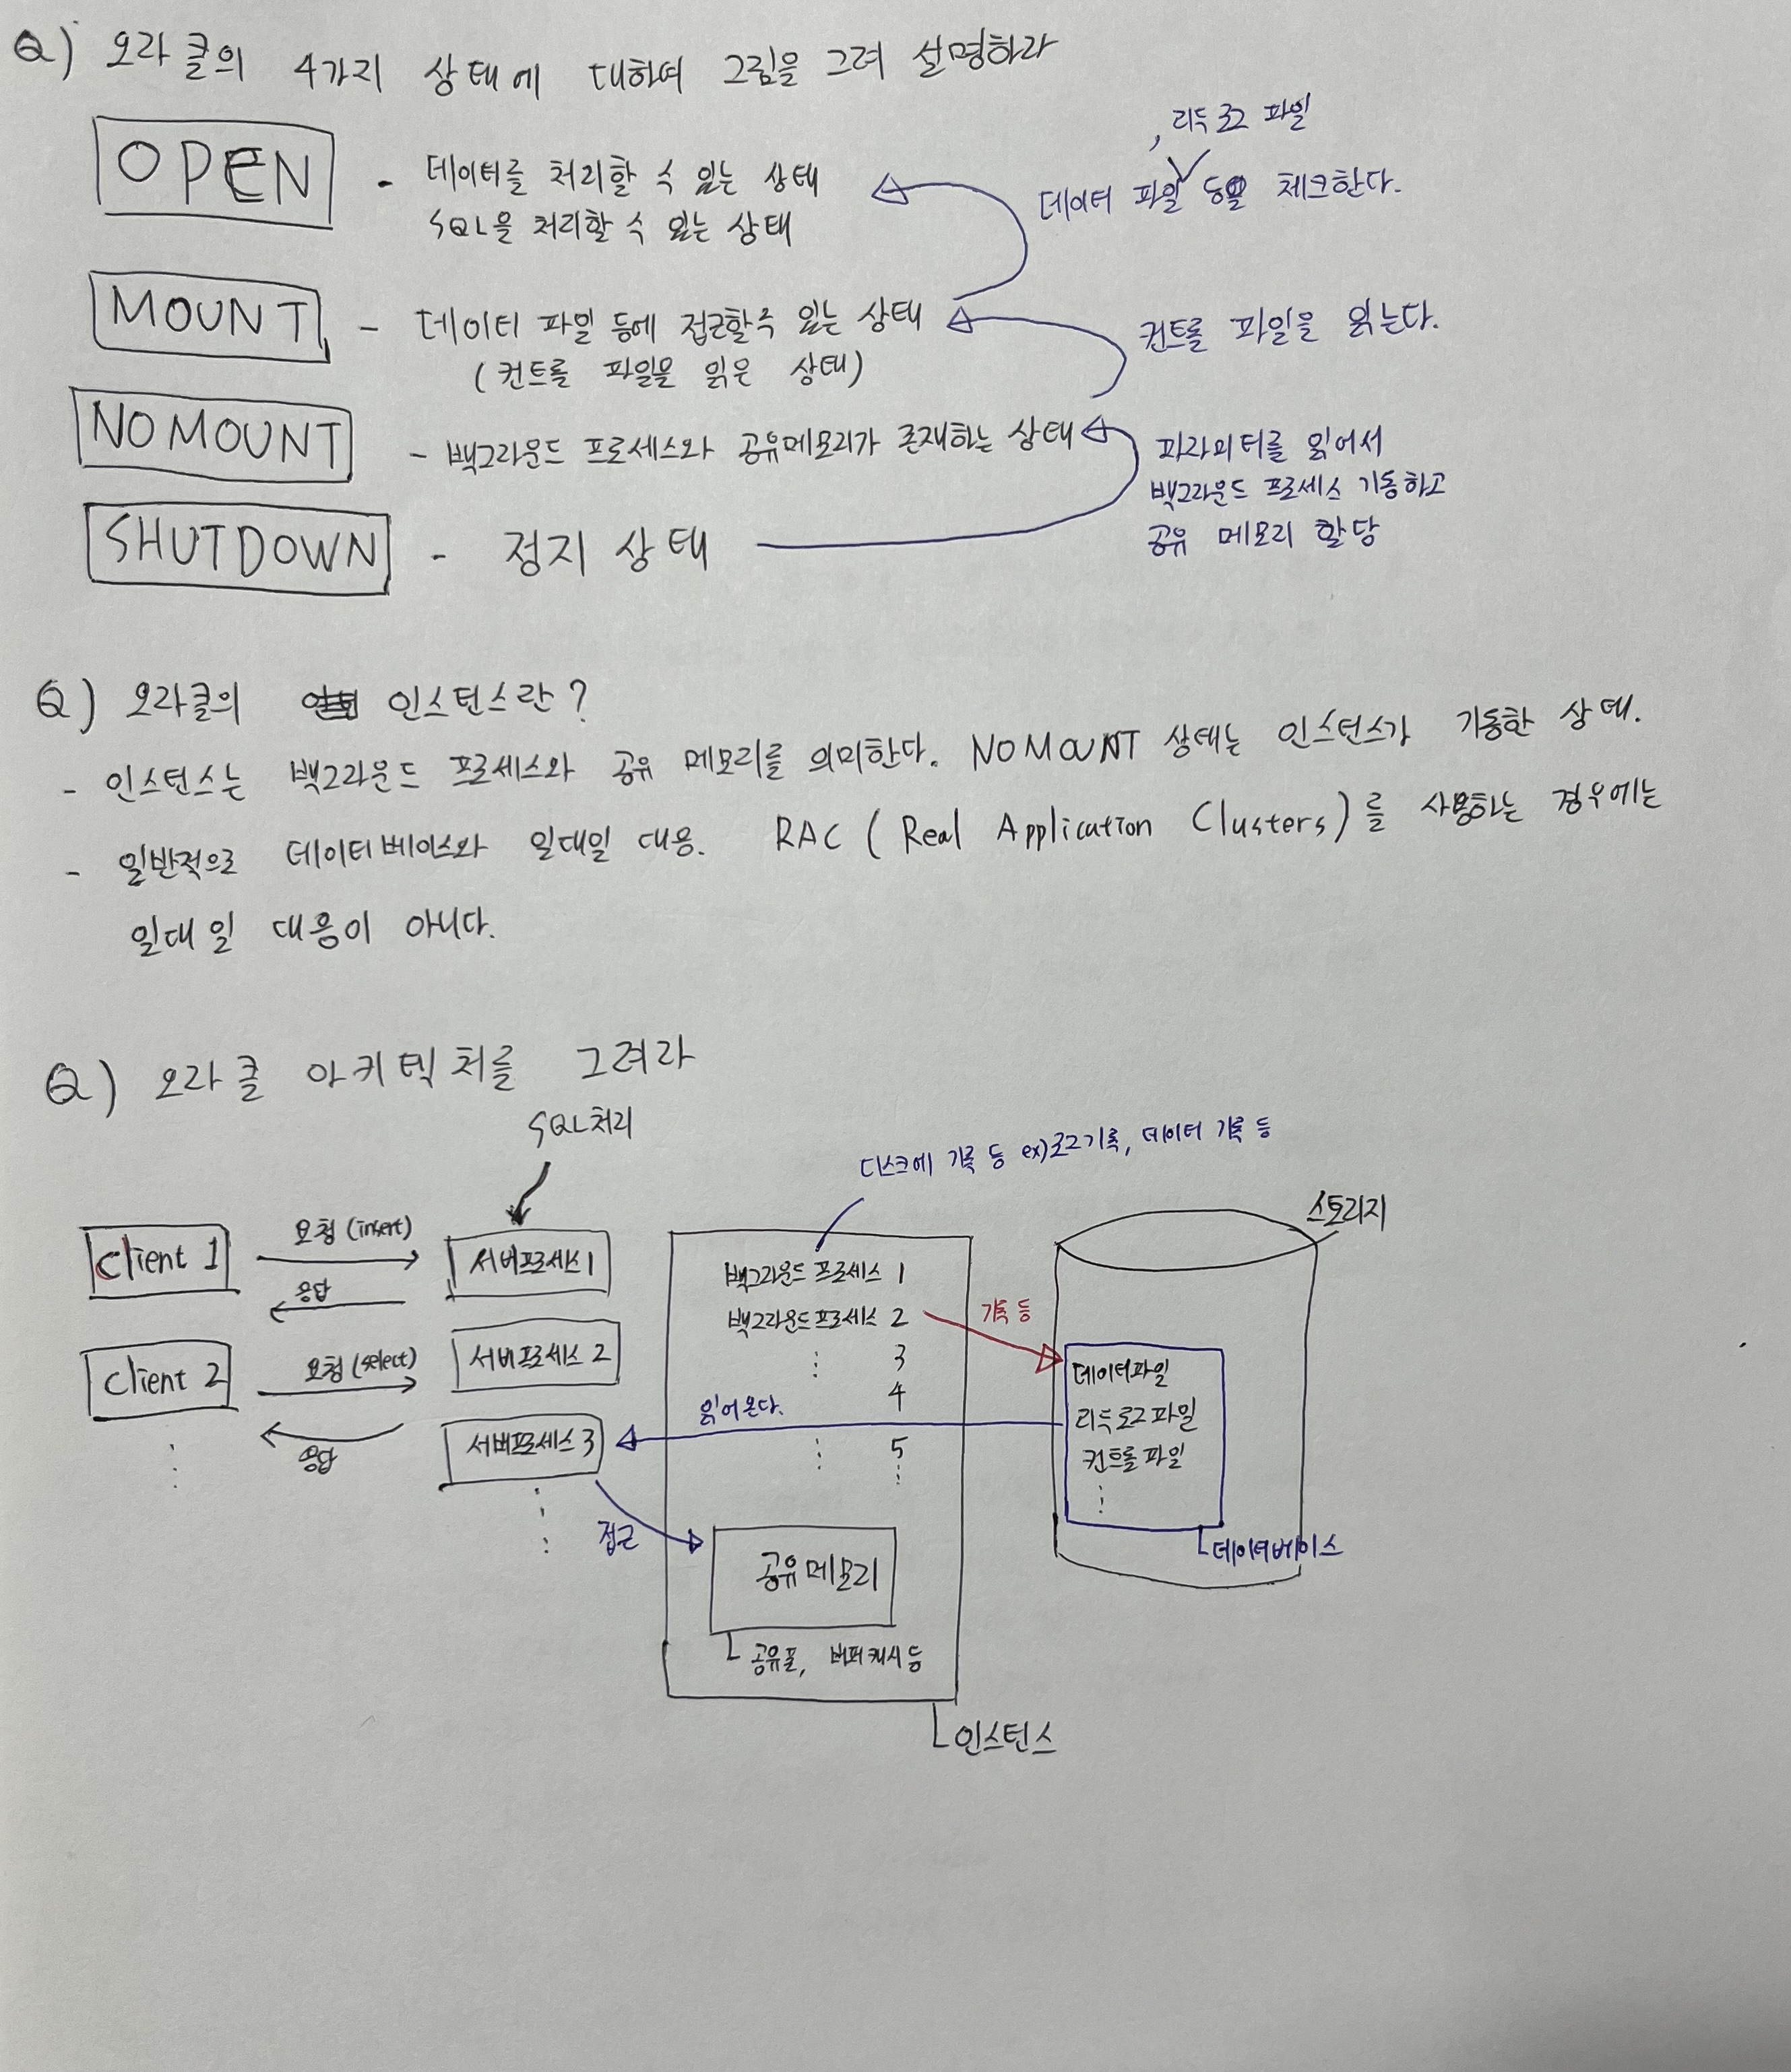 Q) 오라클의 4가지 상태에 대하여 그림을 그려 설명하라
, 리두 로그 파일
OPEN - 데이터를 처리할 수 있는 상태
데이터 파일 등을 체크한다.
SQL을 처리할 수 있는 상태
MOUNT - 데이터 파일 등에 접근할 수 있는 상태
컨트롤 파일을 읽는다.
(컨트롤 파일을 읽은 상태)
NOMOUNT - 백그라운드 프로세스와 공유메모리가 존재하는 상태
파라미터를 읽어서
백그라운드 프로세스 기동하고
공유 메모리 할당
SHUTDOWN - 정지 상태
Q) 오라클의 인스턴스란?
- 인스턴스는 백그라운드 프로세스와 공유 메모리를 의미한다. NOMOUNT 상태는 인스턴스가 기동한 상태.
- 일반적으로 데이터베이스와 일대일 대응. RAC (Real Application Clusters)를 사용하는 경우에는
일대일 대응이 아니다.
Q) 오라클 아키텍처를 그려라
SQL처리
디스크에 기록 등 ex)로그기록, 데이터 기록 등
스토리지
Client 1
요청 (insert)
응답
서버프로세스1
백그라운드 프로세스 1
백그라운드프로세스 2
기록 등
Client 2
요청 (select)
응답
서버프로세스 2
⋮ 3
4
⋮ 5
⋮
데이터파일
리두로그파일
컨트롤파일
⋮
읽어온다.
서버프로세스 3
⋮
접근
데이터베이스
공유메모리
공유풀, 버퍼캐시 등
인스턴스